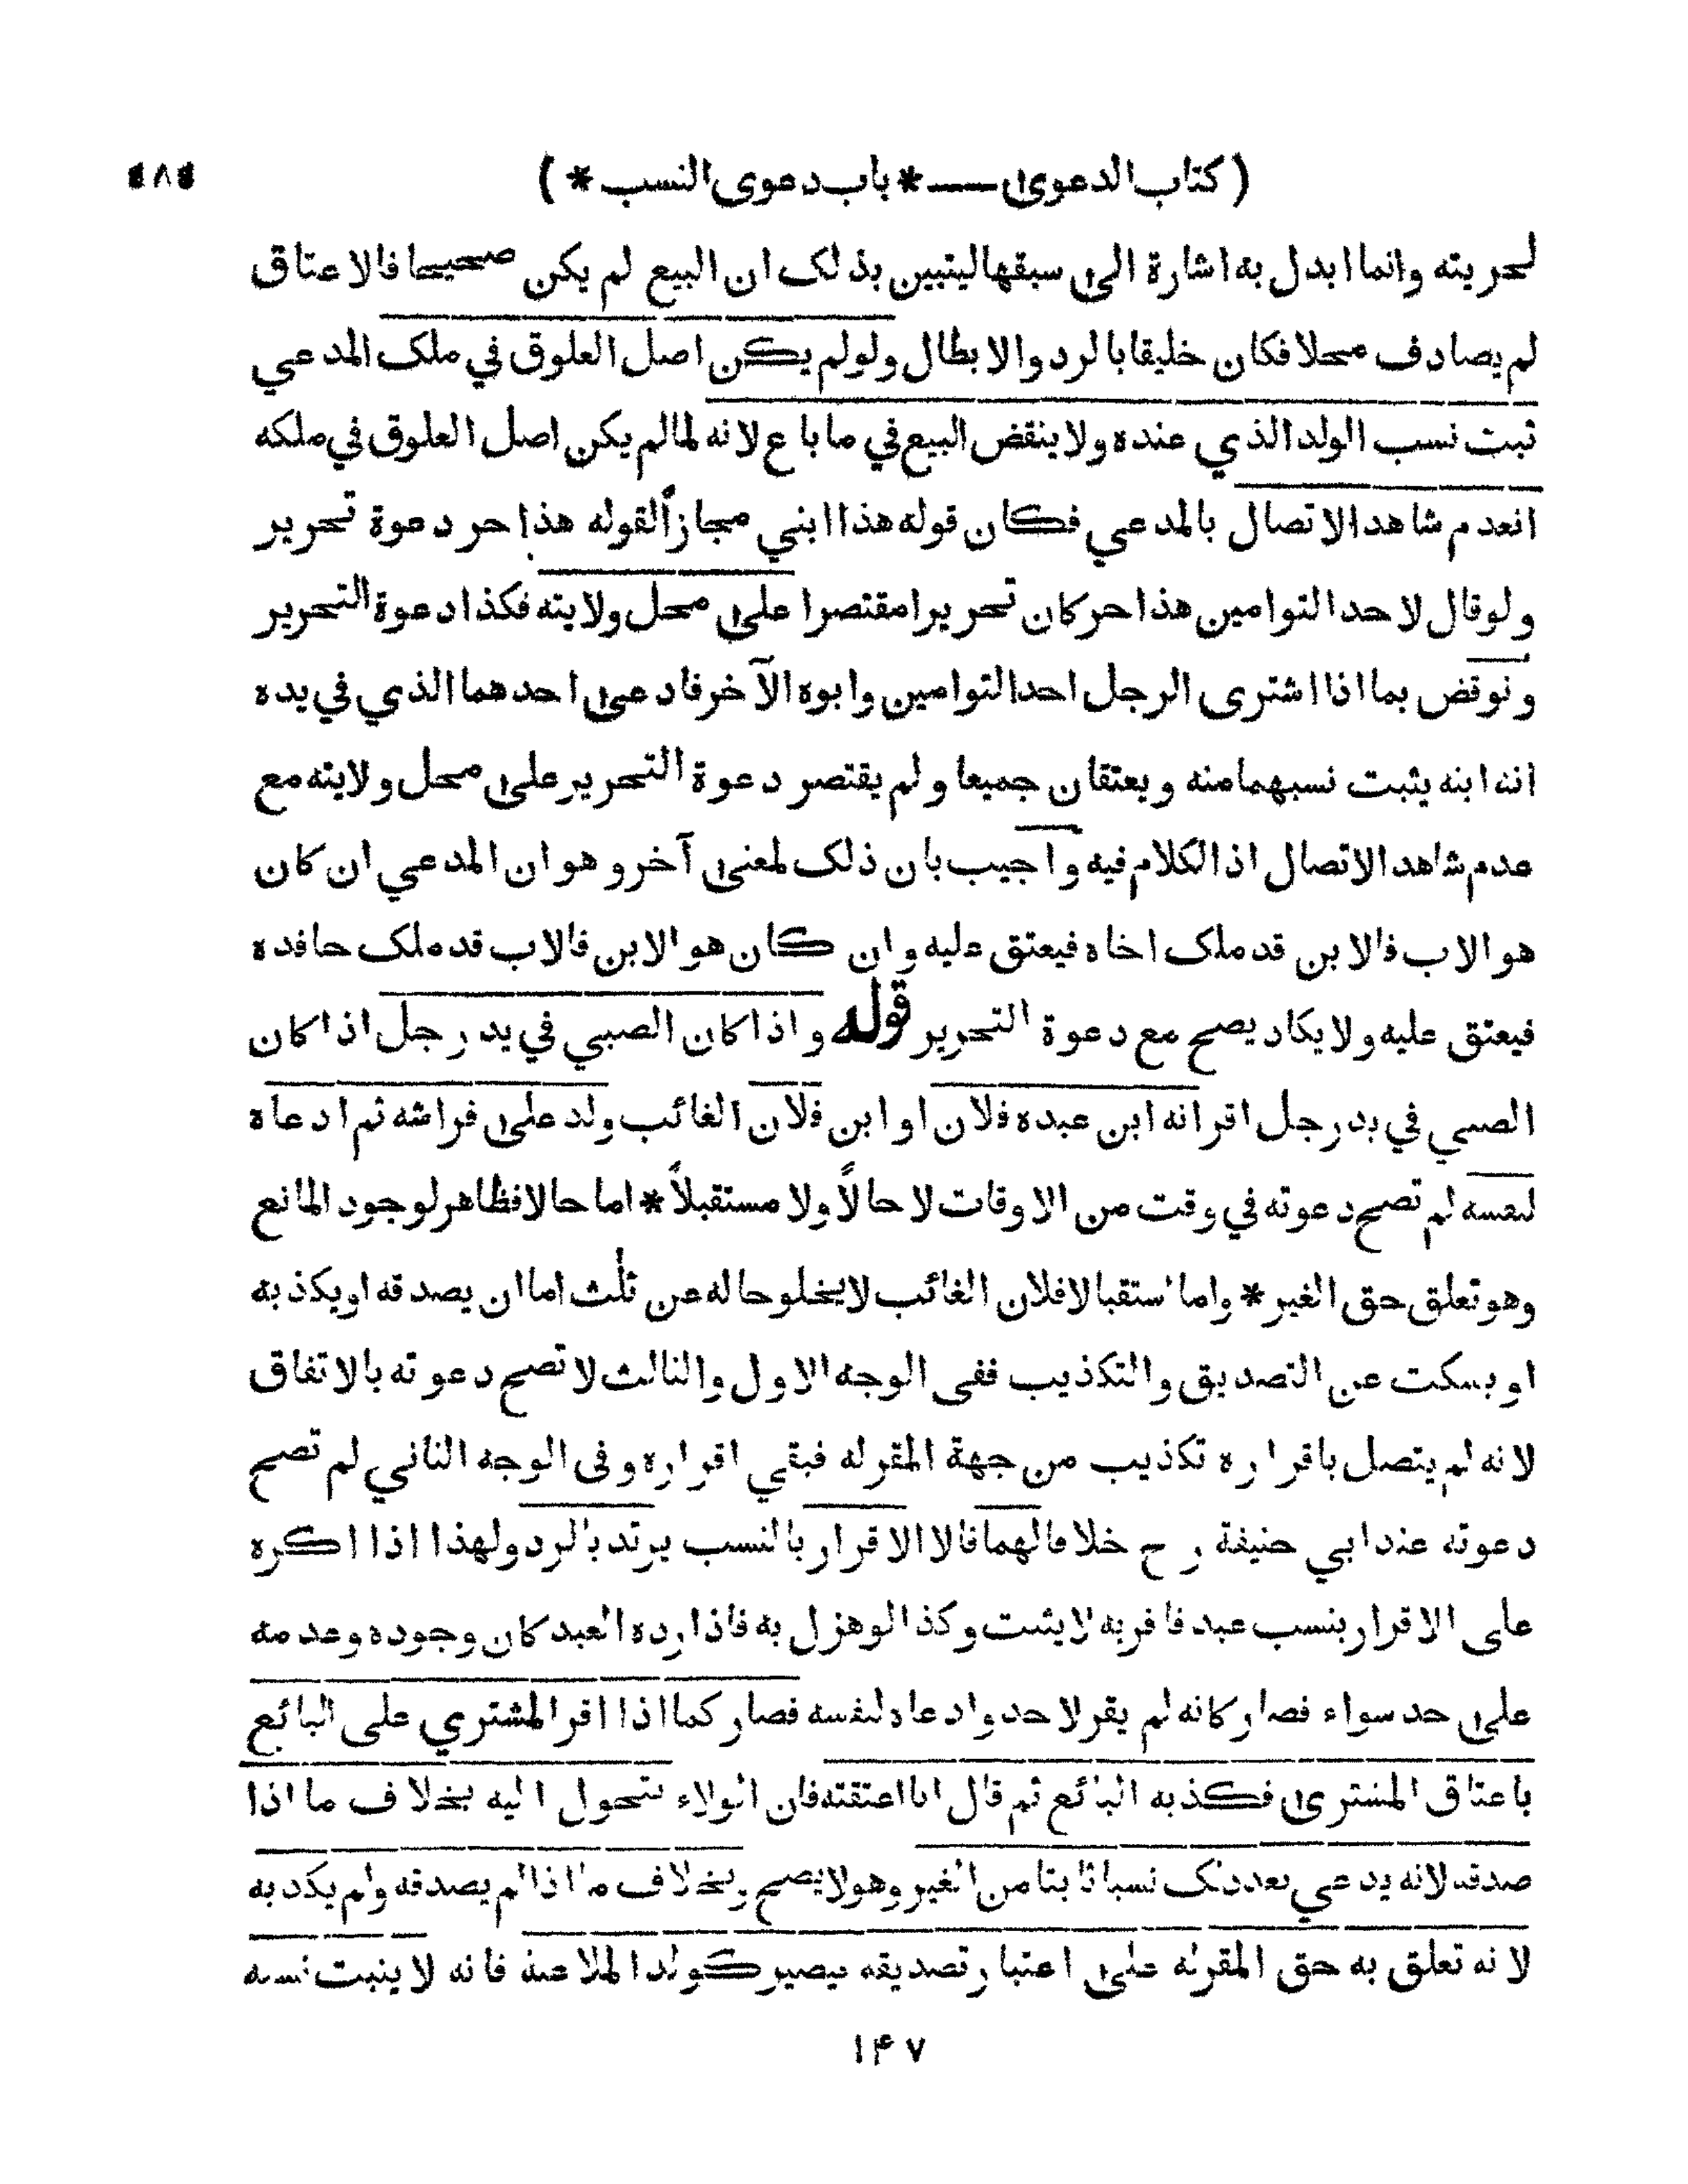 ( كتاب الدعوى — * باب دعوى النسب * )
لحريته وانما ابدل به اشارة الى سبقها ليتبين بذلك ان البيع لم يكن صحيحا فالاعتاق
لم يصادف محلا فكان خليقا بالرد والابطال ولو لم يكن اصل العلوق في ملك المدعي
ثبت نسب الولد الذي عنده ولا ينقض البيع في ما باع لانه لما لم يكن اصل العلوق في ملكه
انعدم شاهد الاتصال بالمدعي فكان قوله هذا ابني مجازاً لقوله هذا حر دعوة تحرير
ولو قال لاحد التوامين هذا حر كان تحريرا مقتصرا على محل ولايته فكذا دعوة التحرير
ونوقض بما اذا اشترى الرجل احد التوامين وابوه الآخر فادعى احدهما الذي في يده
انه ابنه يثبت نسبهما منه ويعتقان جميعا ولم يقتصر دعوة التحرير على محل ولايته مع
عدم شاهد الاتصال اذ الكلام فيه واجيب بان ذلك لمعنى آخر وهو ان المدعي ان كان
هو الاب فالابن قد ملك اخاه فيعتق عليه وان كان هو الابن فالاب قد ملك حافده
فيعتق عليه ولا يكاد يصح مع دعوة التحرير قوله واذا كان الصبي في يد رجل اذا كان
الصبي في يد رجل اقر انه ابن عبده فلان او ابن فلان الغائب ولد على فراشه ثم ادعاه
لنفسه لم تصح دعوته في وقت من الاوقات لا حالاً ولا مستقبلاً * اما حالا فظاهر لوجود المانع
وهو تعلق حق الغير * واما استقبالا فلان الغائب لا يخلو حاله عن ثلث اما ان يصدقه او يكذبه
او يسكت عن التصديق والتكذيب ففى الوجه الاول والثالث لا تصح دعوته بالاتفاق
لانه لم يتصل باقراره تكذيب من جهة المقر له فبقي اقراره وفى الوجه الثاني لم تصح
دعوته عند ابي حنيفة رح خلافا لهما قالا الاقرار بالنسب يرتد بالرد ولهذا اذا اكره
على الاقرار بنسب عبد فاقر به لا يثبت وكذا لو هزل به فاذا رده العبد كان وجوده وعدمه
على حد سواء فصار كانه لم يقر لاحد وادعاه لنفسه فصار كما اذا اقر المشتري على البائع
باعتاق المشترى فكذبه البائع ثم قال انا اعتقته فان الولاء يتحول اليه بخلاف ما اذا
صدقه لانه يدعي بعد ذلك نسبا ثابتا من الغير وهو لا يصح وبخلاف ما اذا لم يصدقه ولم يكذبه
لانه تعلق به حق المقر له على اعتبار تصديقه فيصير كولد الملاعنة فانه لا يثبت نسبه
۱۴۷